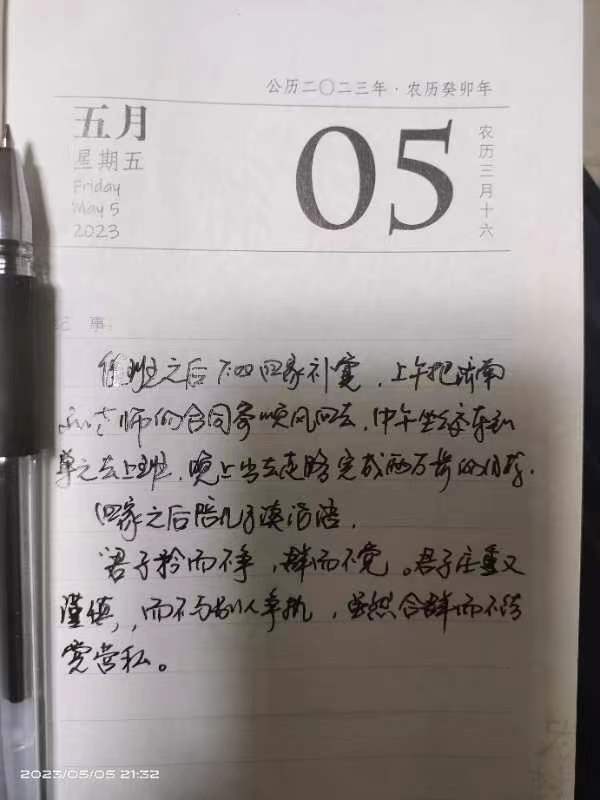 公历二〇二三年·农历癸卯年
五月
星期五
Friday
May 5
2023
05
农历三月十六
记 事
值班之后 回家补觉，上午把济南
老师的合同寄顺风回去，中午坐
单元去上班，晚上出去走路完成两万步的目标.
回家之后陪儿子读论语，
“君子矜而不争，群而不党。君子庄重又
谨慎，而不与别人争执，虽然合群而不结
党营私。
2023/05/05 21:32